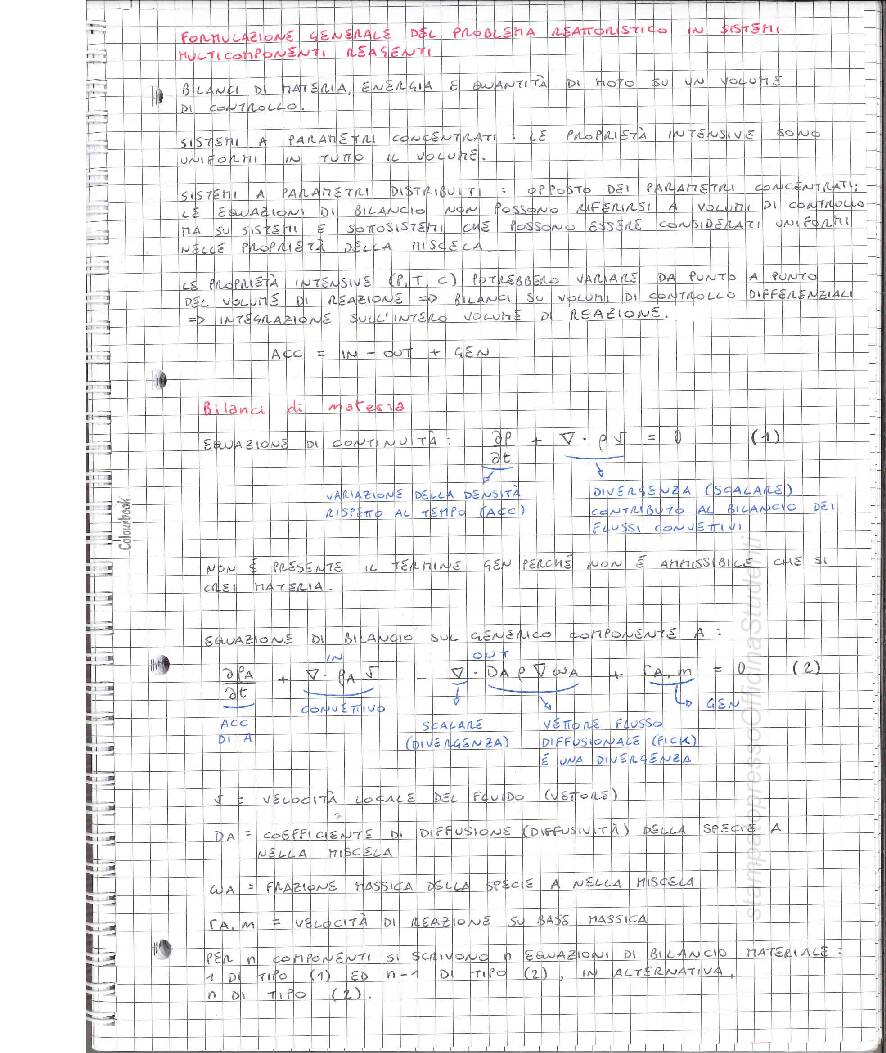 FORMULAZIONE GENERALE DEL PROBLEMA REATTORISTICO IN SISTEMI
MULTICOMPONENTI REAGENTI
BILANCI DI MATERIA, ENERGIA E QUANTITÀ DI MOTO SU UN VOLUME
DI CONTROLLO.
SISTEMI A PARAMETRI CONCENTRATI : LE PROPRIETÀ INTENSIVE SONO
UNIFORMI IN TUTTO IL VOLUME.
SISTEMI A PARAMETRI DISTRIBUITI : OPPOSTO DEI PARAMETRI CONCENTRATI;
LE EQUAZIONI DI BILANCIO NON POSSONO RIFERIRSI A VOLUMI DI CONTROLLO
MA SU SISTEMI E SOTTOSISTEMI CHE POSSONO ESSERE CONSIDERATI UNIFORMI
NELLE PROPRIETÀ DELLA MISCELA.
LE PROPRIETÀ INTENSIVE (P, T, C) POTREBBERO VARIARE DA PUNTO A PUNTO
DEL VOLUME DI REAZIONE => BILANCI SU VOLUMI DI CONTROLLO DIFFERENZIALI
=> INTEGRAZIONE SULL'INTERO VOLUME DI REAZIONE.
ACC = IN - OUT + GEN
Bilanci di materia
EQUAZIONE DI CONTINUITÀ : ∂ρ/∂t + ∇ · ρ v = 0 (1)
VARIAZIONE DELLA DENSITÀ
RISPETTO AL TEMPO (ACC)
DIVERGENZA (SCALARE)
CONTRIBUTO AL BILANCIO DEI
FLUSSI CONVETTIVI
NON È PRESENTE IL TERMINE GEN PERCHÉ NON È AMMISSIBILE CHE SI
CREI MATERIA.
EQUAZIONE DI BILANCIO SUL GENERICO COMPONENTE A :
IN OUT
∂ρA/∂t + ∇ · ρA v - ∇ · DA ρ ∇ ωA + rA,m = 0 (2)
ACC
DI A
CONVETTIVO
SCALARE
(DIVERGENZA)
VETTORE FLUSSO
DIFFUSIONALE (FICK)
È UNA DIVERGENZA
GEN
v = VELOCITÀ LOCALE DEL FLUIDO (VETTORE)
DA = COEFFICIENTE DI DIFFUSIONE (DIFFUSIVITÀ) DELLA SPECIE A
NELLA MISCELA
ωA = FRAZIONE MASSICA DELLA SPECIE A NELLA MISCELA
rA,m = VELOCITÀ DI REAZIONE SU BASE MASSICA
PER n COMPONENTI SI SCRIVONO n EQUAZIONI DI BILANCIO MATERIALE :
1 DI TIPO (1) ED n-1 DI TIPO (2), IN ALTERNATIVA,
n DI TIPO (2).
Colourbook
stampatopressoOfficinaStudenti